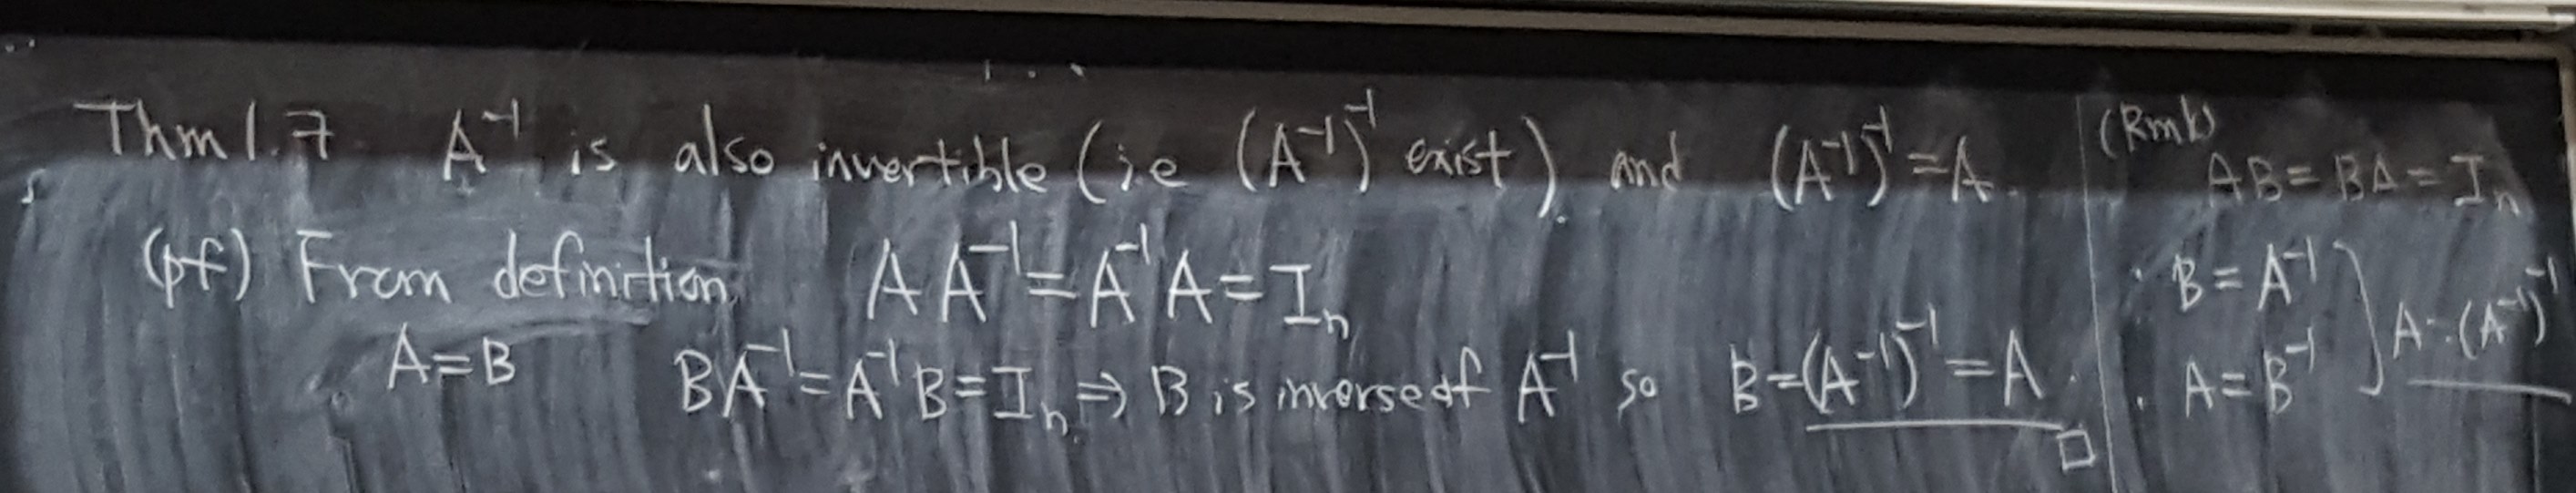 Thm 1.7. A⁻¹ is also invertible (i.e (A⁻¹)⁻¹ exist). and (A⁻¹)⁻¹ = A.
(pf) From definition, A A⁻¹ = A⁻¹ A = Iₙ
A = B BA⁻¹ = A⁻¹B = Iₙ. ⇒ B is inverse of A⁻¹ so B = (A⁻¹)⁻¹ = A. □
(Rmk)
AB = BA = Iₙ
· B = A⁻¹
· A = B⁻¹
A = (A⁻¹)⁻¹